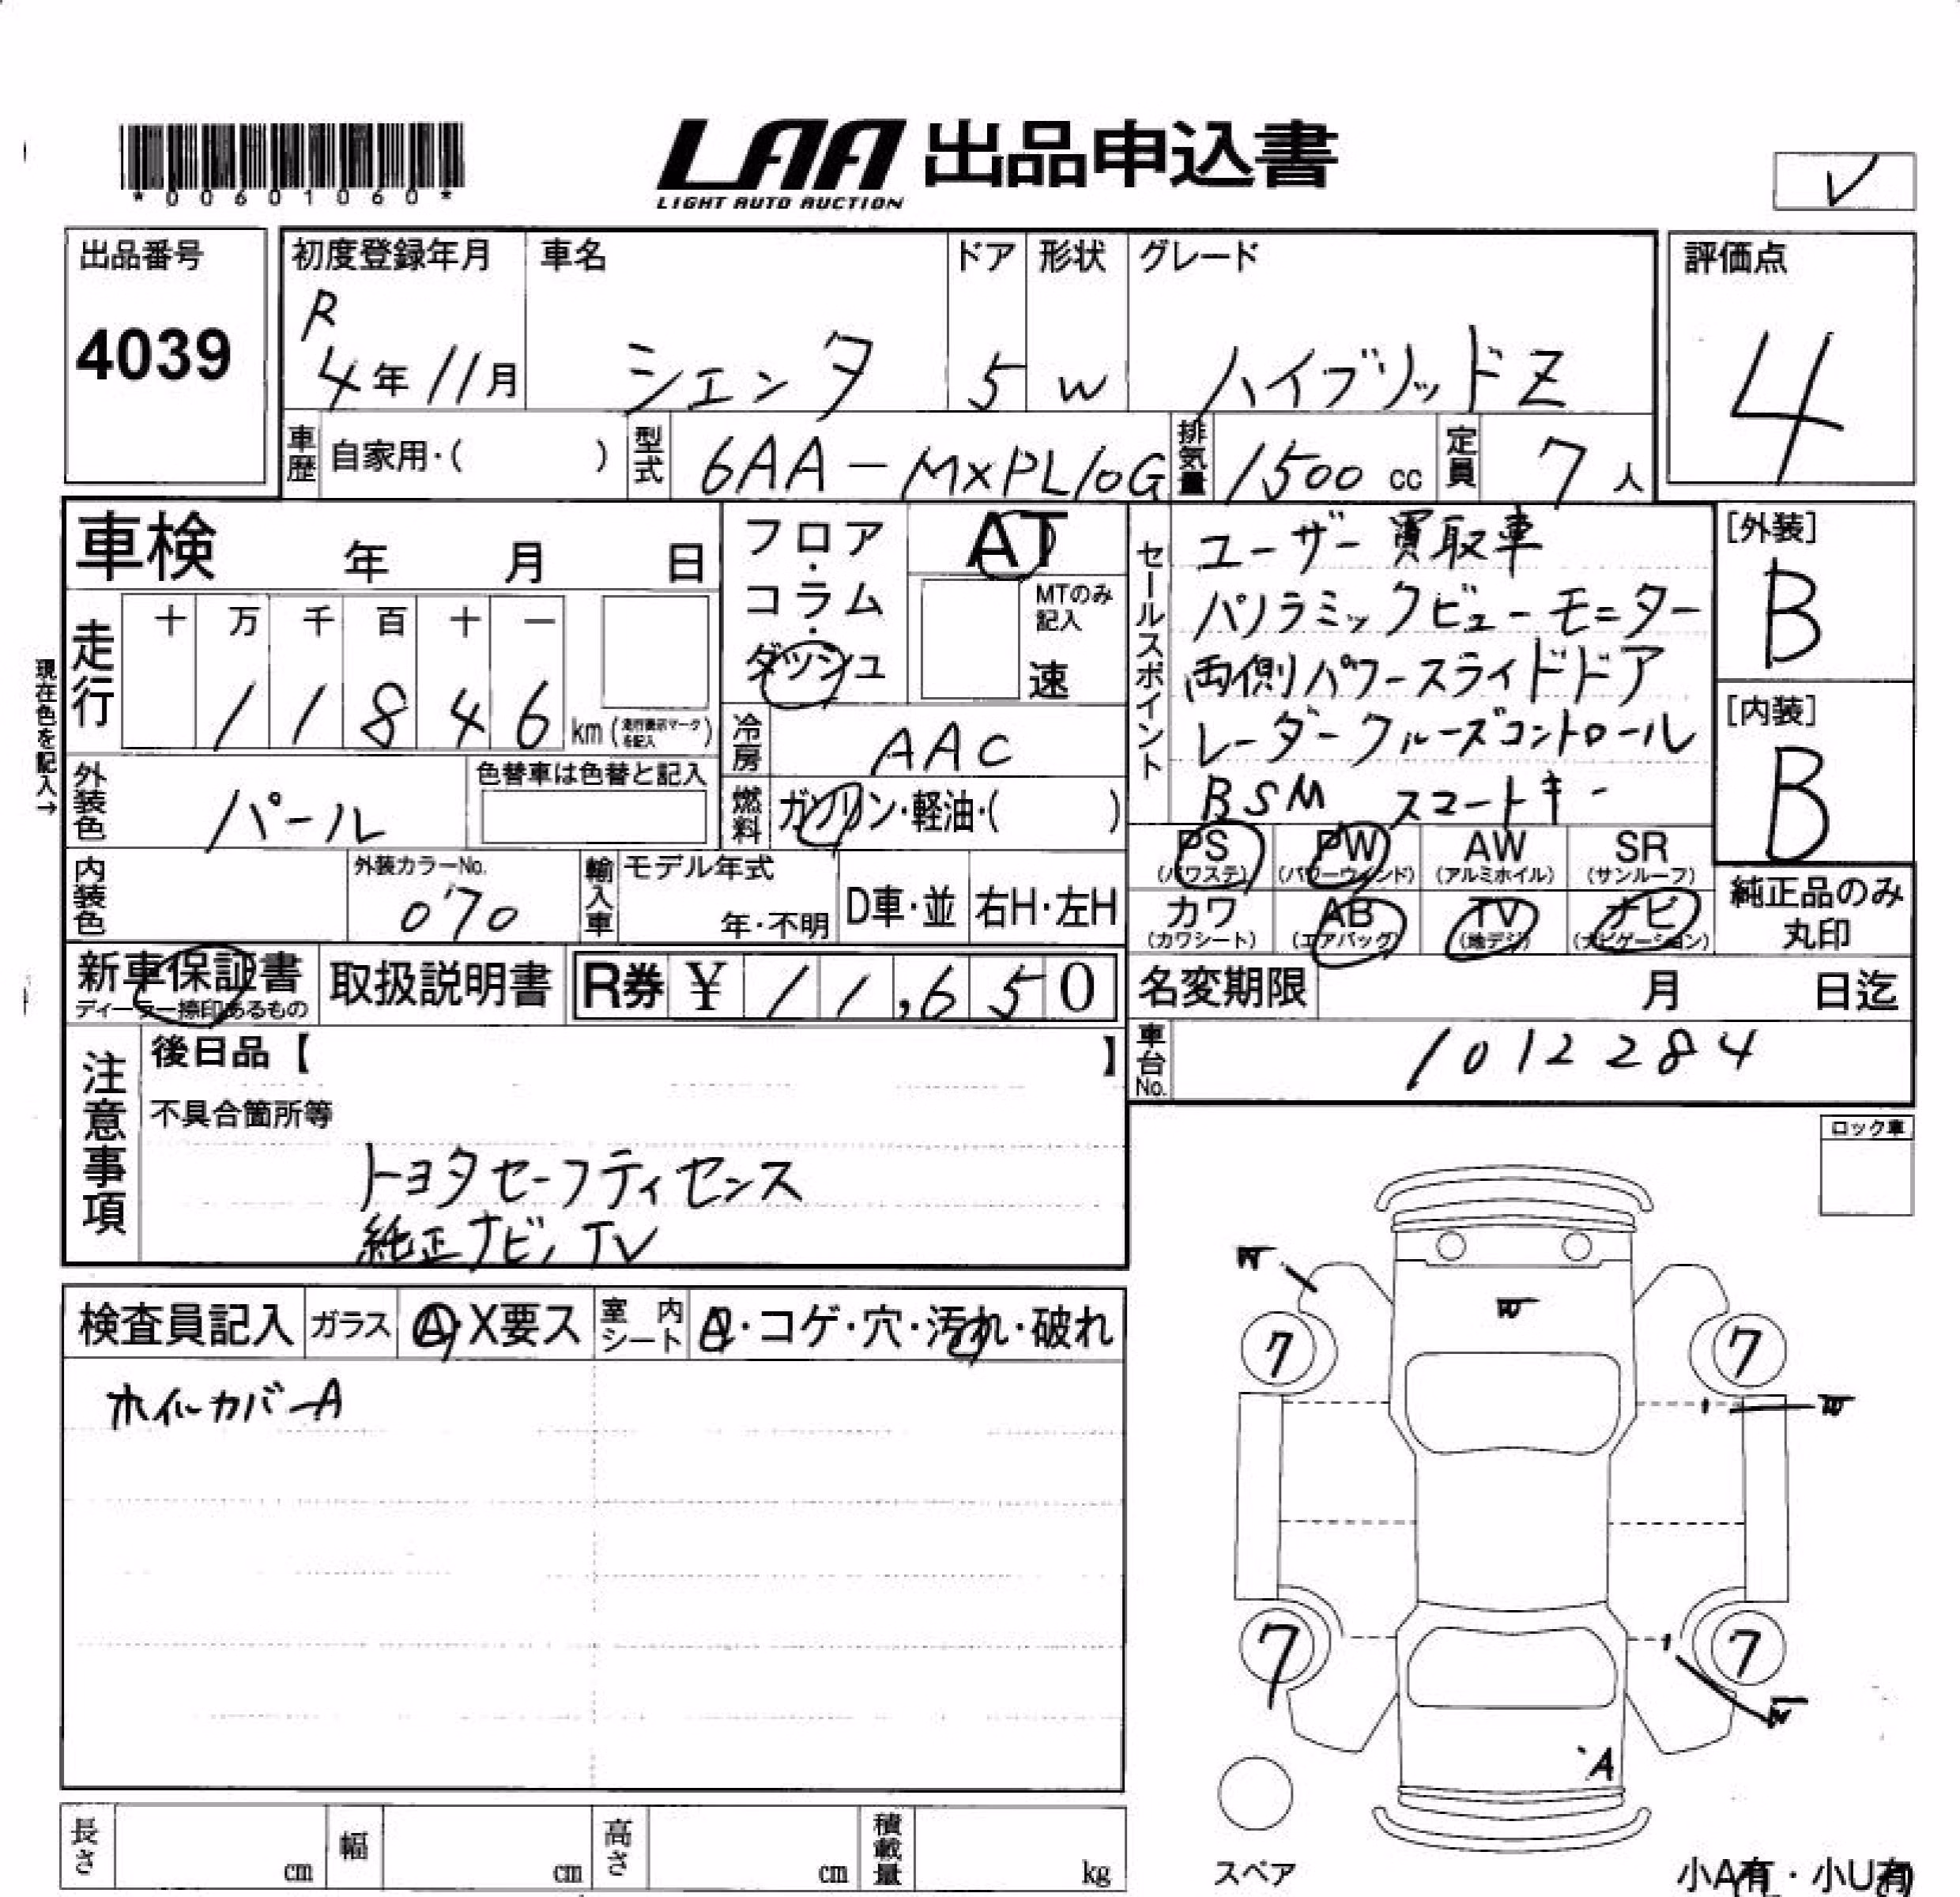 *00601060*
LAA 出品申込書
LIGHT AUTO AUCTION
レ
出品番号
4039
初度登録年月 車名 ドア 形状 グレード 評価点
R
4年11月 シエンタ 5 W ハイブリッドZ 4
車歴 自家用・( ) 型式 6AA-MXPL10G 排気量 1500 cc 定員 7人
車検 年 月 日
フロア・コラム・ダッシュ AT
MTのみ記入
速
現在色を記入→
走行 十 万 千 百 十 一
11846 km (走行表示マークを記入)
冷房 AAC
外装色 パール 色替車は色替と記入
燃料 ガソリン・軽油・( )
セールスポイント
ユーザー買取車
パノラミックビューモニター
両側パワースライドドア
レーダークルーズコントロール
BSM スマートキー
[外装]
B
[内装]
B
内装色 外装カラーNo. 070 輸入車 モデル年式 年・不明 D車・並 右H・左H
PS (パワステ) PW (パワーウィンド) AW (アルミホイル) SR (サンルーフ)
カワ (カワシート) AB (エアバッグ) TV (地デジ) ナビ (ナビゲーション)
純正品のみ
丸印
新車保証書 取扱説明書 R券 ¥ 11,650
ディーラー捺印あるもの
名変期限 月 日迄
車台No. 1012284
注意事項
後日品【 】
不具合箇所等
トヨタセーフティセンス
純正ナビ,TV
ロック車
検査員記入 ガラス A・X要ス 室内シート ・コゲ・穴・汚れ・破れ
ホイルカバーA
7 7
7 7
A
スペア
長さ cm 幅 cm 高さ cm 積載量 kg
小A有・小U有